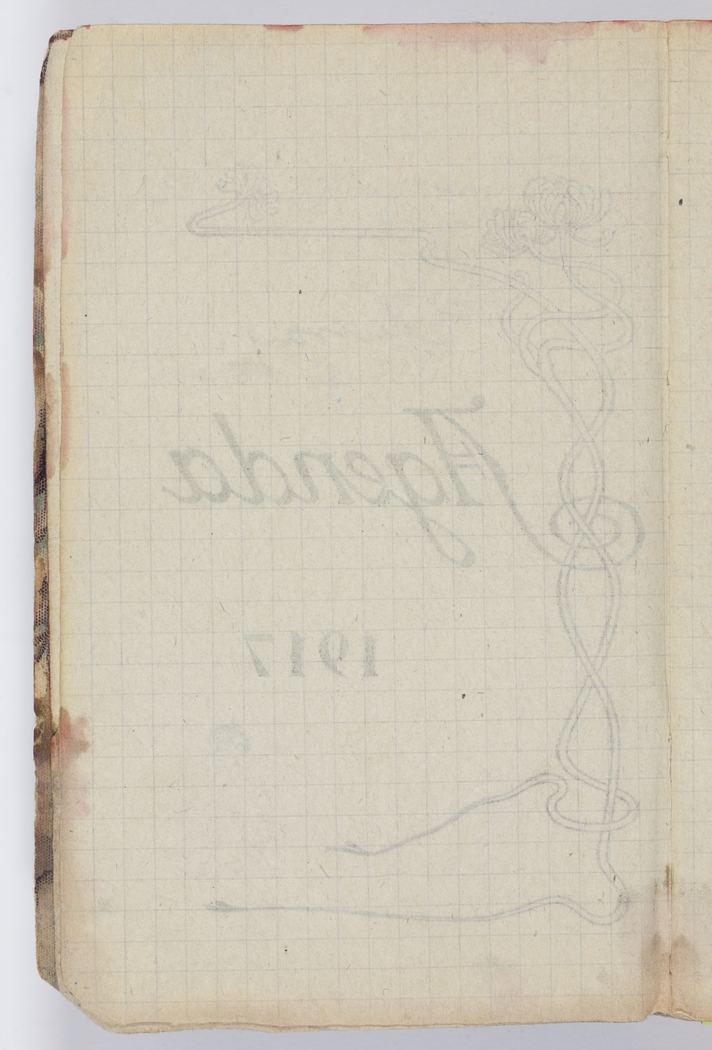 Agenda
1917